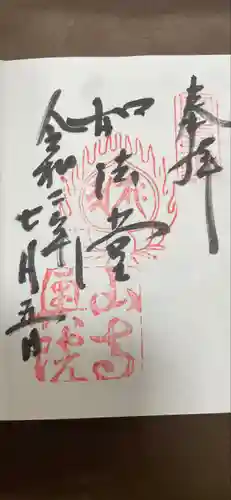 奉拝
如法堂
令和三年
七月五日
山寺